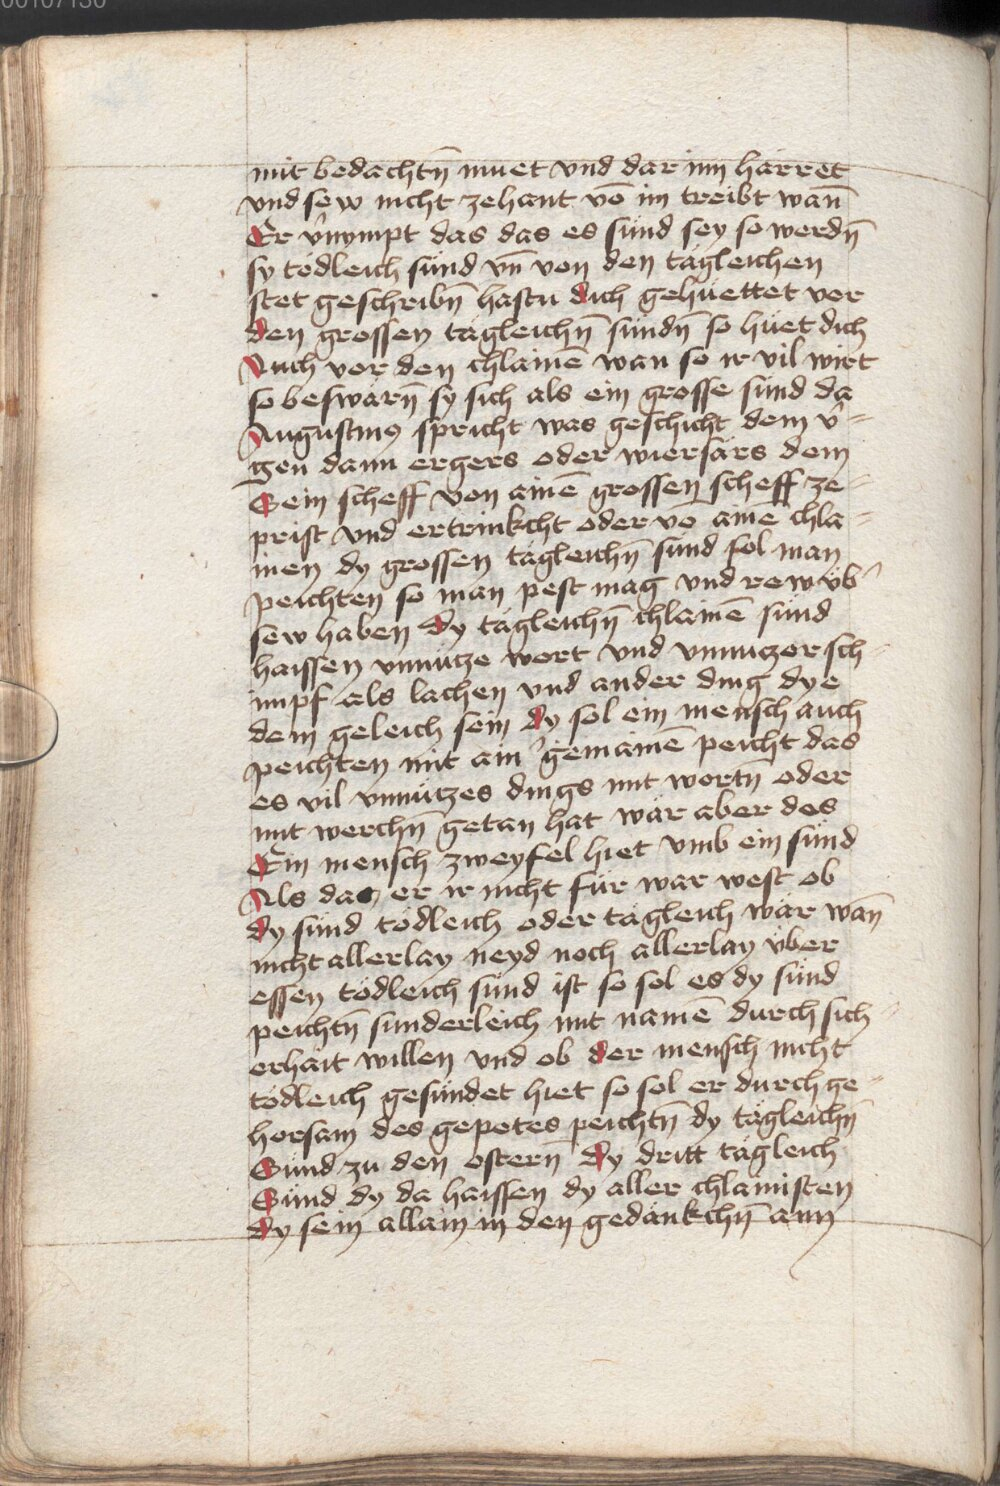 00107130
mit bedachtn̄ muet vnd dar inn harret
vnd sew nicht zehant vō im treibt wan̄
Er v̉nympt das das es sünd sey so werdn̄
sy tödleich sünd vn̄ von den tägleichen
stet geschribn̄ hastu dich gehüettet vor
den grossen tägleichn̄ sündn̄ so hüet dich
Auch vor den chlainē wan so ir vil wirt
so beswärn̄ sy sich als ein grosse sünd da
Augustinꝰ spricht was geschicht dem v̉-
gen dann ergers oder wiersärs dem
Sein scheff von ainē grossen scheff ze-
prist vnd ertrinkcht oder vō aine chla-
inen dy grossen tägleichn̄ sünd sol man
peichten so man pest mag vnd rew üb̉
sew haben Dy tägleichn̄ chlainē sünd
haissen vnnütze wort vnd vnnutzer sch-
impf als lachen vnd ander ding dye
dem geleich sein dy sol ein mensch auch
peichten mit ain̉ gemainē peicht das
es vil vnnützes dings mit wortn̄ oder
mit werchn̄ getan hat wär aber des
Ein mensch zweyfel hiet vmb ein sünd
Als das er ir nicht für war west ob
dy sünd tödleich oder tägleich wär wan̄
nicht allerlay neyd noch allerlay über
essen tödleich sünd ist so sol es dy sünd
peichtn̄ sunderleich mit namē durch sich-
erhait willen vnd ob der mensch nicht
tödleich gesündet hiet so sol er durch ge-
horsam des gepotes peichtn̄ dy tägleichn̄
Sünd zu den ostern̄ Dy dritt tägleich
Sünd dy da haissen dy aller chlainisten
dy sein allain in den gedänkchn̄ ann